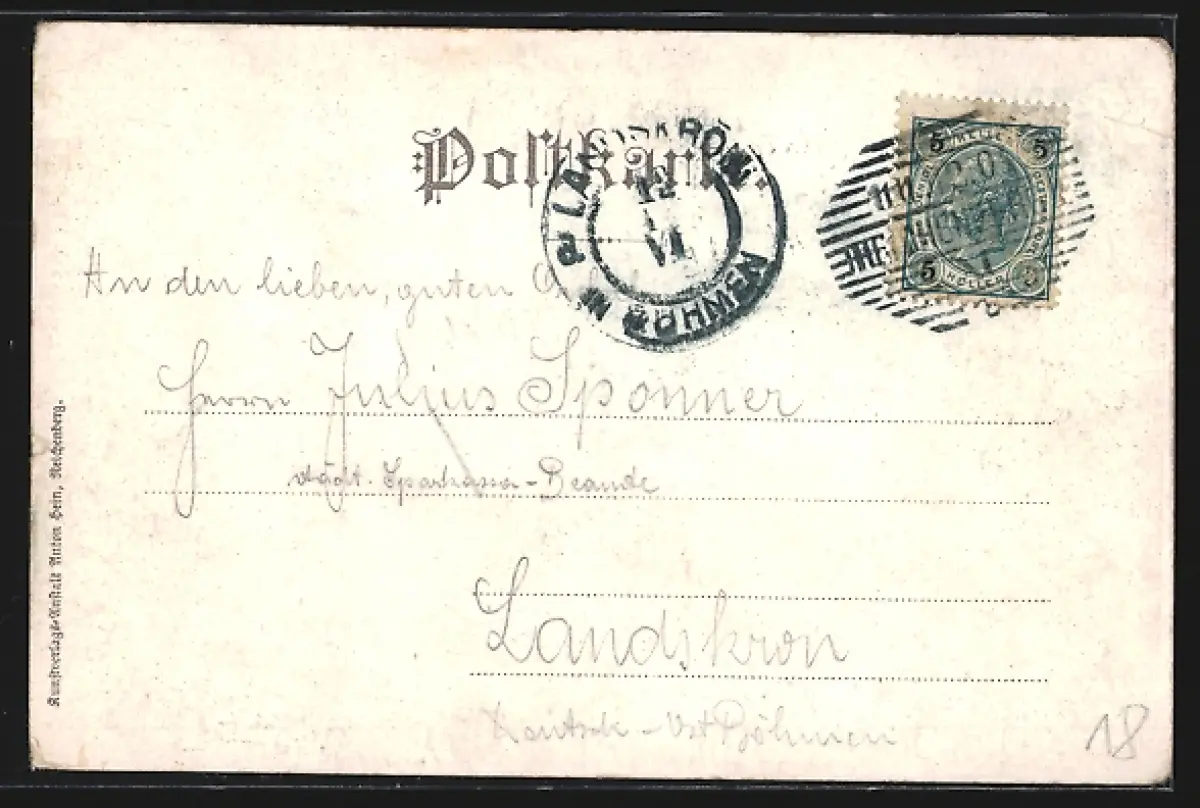 Postkarte.
LANDSKRON
12
VI
IN BÖHMEN
5 HELLER 5
5 HELLER 5
An den lieben, guten
Herrn Julius Sponner
städt. Sparkassa-Beamte
Landskron
Deutsch-Ost Böhmen
18
Kunstverlags-Anstalt Anton Hein, Reichenberg.